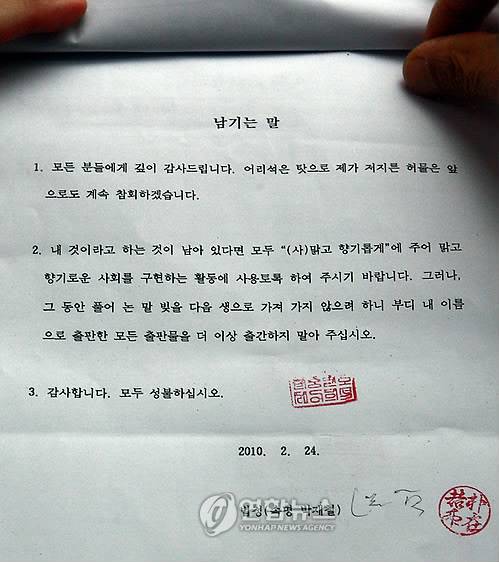 남기는 말
1. 모든 분들에게 깊이 감사드립니다. 어리석은 탓으로 제가 저지른 허물은 앞
으로도 계속 참회하겠습니다.
2. 내 것이라고 하는 것이 남아 있다면 모두 "(사)맑고 향기롭게"에 주어 맑고
향기로운 사회를 구현하는 활동에 사용토록 하여 주시기 바랍니다. 그러나,
그 동안 풀어 논 말 빚을 다음 생으로 가져 가지 않으려 하니 부디 내 이름
으로 출판한 모든 출판물을 더 이상 출간하지 말아 주십시오.
3. 감사합니다. 모두 성불하십시오.
2010. 2. 24.
법정(속명 박재철)
연합뉴스
YONHAP NEWS AGENCY